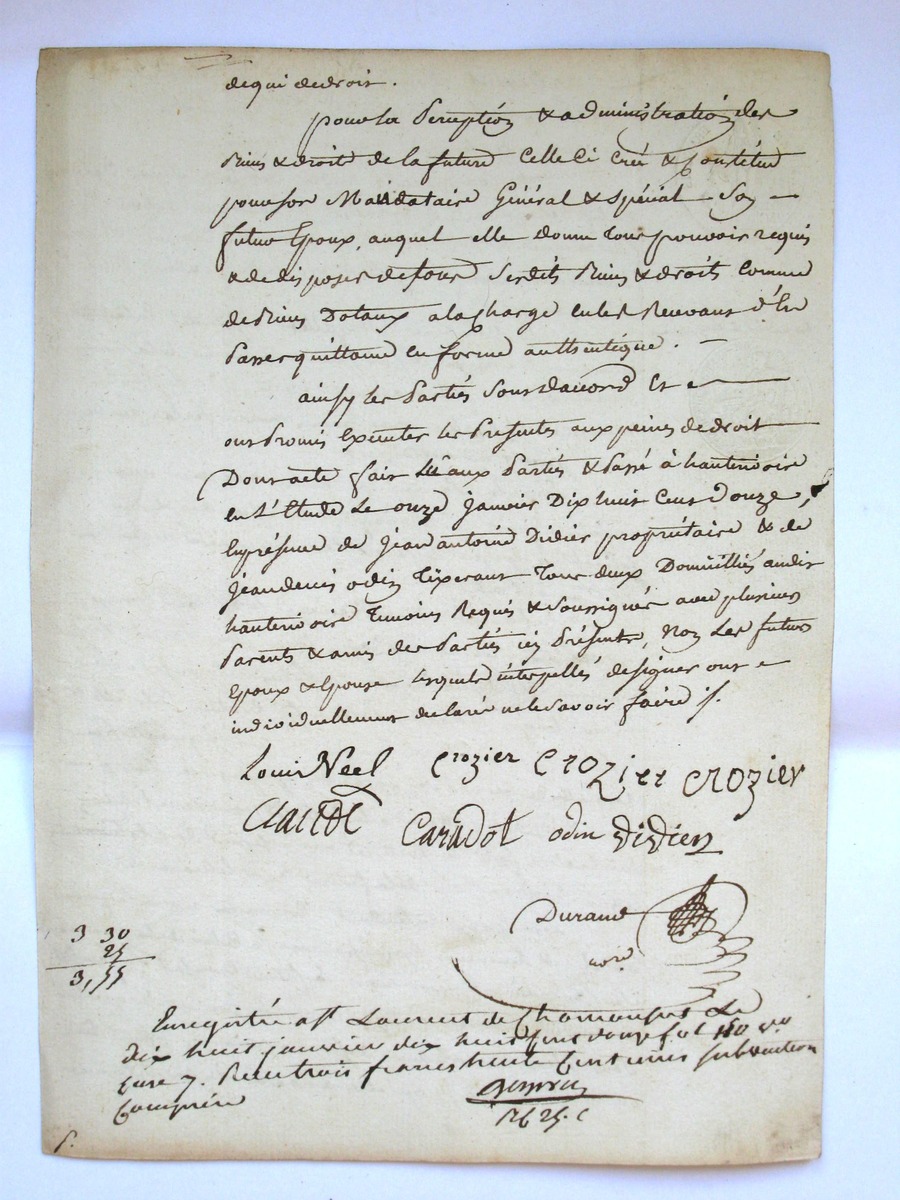 de qui de droit.
pour la perception & administration des
biens & droit de la future Celle Ci Créé & Constitue
pour son Mandataire Général & spécial Son
futur Epoux, auquel elle donne tous pouvoir requis
& de disposer de tous Sesdits biens & droits Comme
de biens Dotaux a la charge en les Recevant d'En
passer quittance en forme authentique.
ainsy les Parties Sont d'accord Et
ont Promis Executer les Présentes aux peines de droit
Dont acte fait Lû aux Parties & Passé à hauterivoire
en L'Etude Le onze Janvier Dix huit Cent Douze,
En présence de Jean antoine Didier propriétaire & de
Jean denis odin Tixerant Tous deux Domicilliés audit
hauterivoire Temoins Requis & Soussignés avec plusieurs
Parents & amis des Parties icy Présents, Non Les futurs
Epoux & Epouse lesquels interpellés de signer ont
individuellement declaré ne le Savoir faire ./.
Louis Neel Crozier Crozier Crozier
Claude Caradot odin Didier
Durand
nore
3 30
25
3,55
Enregistré a St Laurent de Chamousset Le
dix huit janvier dix huit cent douze fol 110 vo
Case 7. Reçu trois francs trente Centimes subvention
Comprise
25. c